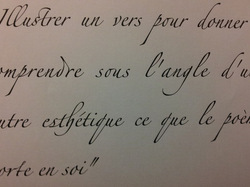 Illustrer un vers pour donner
comprendre sous l'angle d'u
utre esthétique ce que le poè
orte en soi"